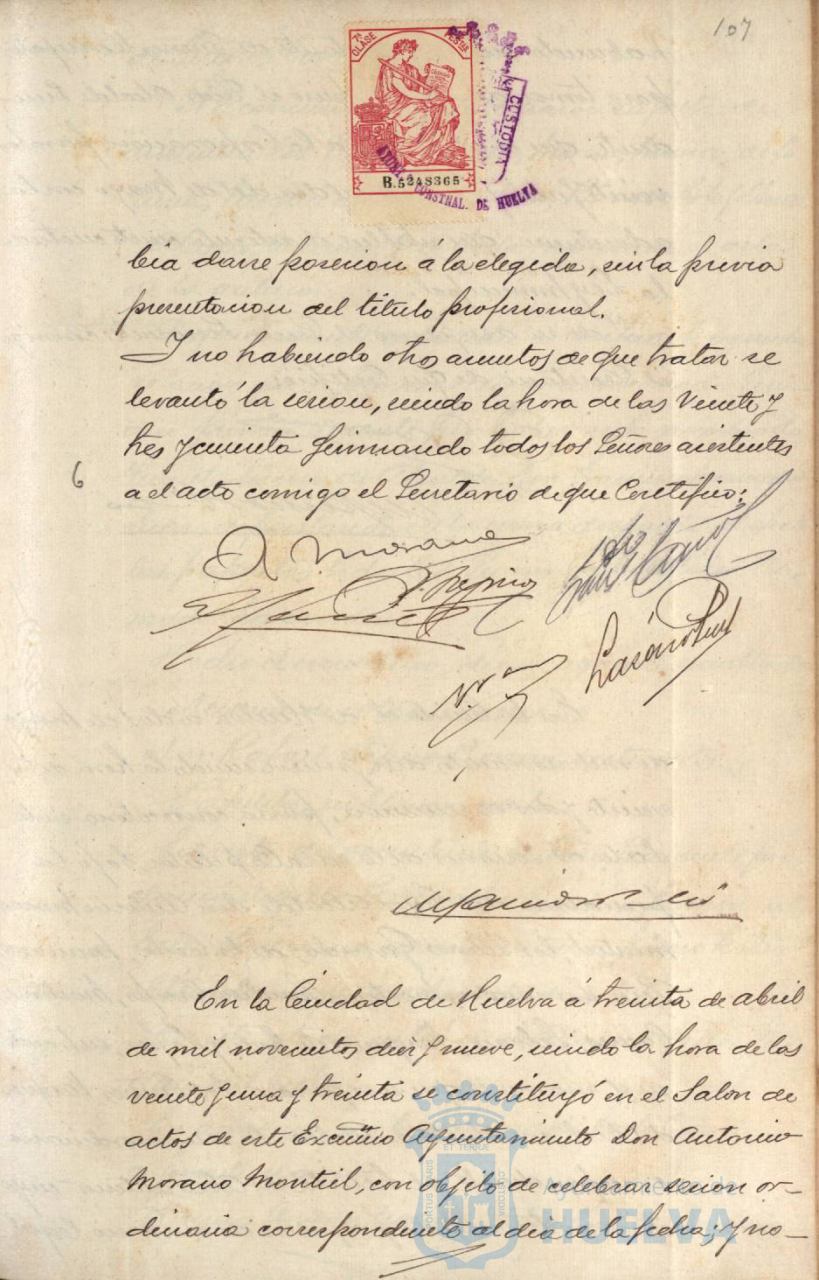 107
7ª CLASE
PESETAS
B.5248365
CUSTODIA
AYUNTº CONSTNAL. DE HUELVA
bia darse posesion á la elegida, sin la previa
presentacion del titulo profesional.
Y no habiendo otros asuntos de que tratar se
levantó la sesion, siendo la hora de las veinte y
tres y cuarenta firmando todos los Señores asistentes
6
a el acto comigo el Secretario de que Certifico:
A Morano
En la Ciudad de Huelva á treinta de abril
de mil novecientos diez y nueve, siendo la hora de las
veinte y una y treinta se constituyó en el Salon de
actos de este Excmo Ayuntamiento Don Antonio
Morano Montiel, con objeto de celebrar sesion or-
dinaria correspondiente al dia de la fecha; y no-
Ayuntamiento de
HUELVA